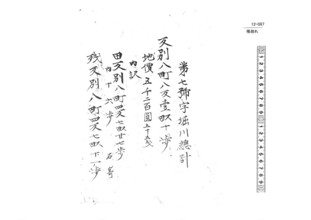 12-087
第七號字堀川總計
反別八町八反壹畝十歩
地價五千二百圓五十五戋
内訳
田反別八町四反七畝廿七歩
内十六歩
残反別八町四反七畝十一歩